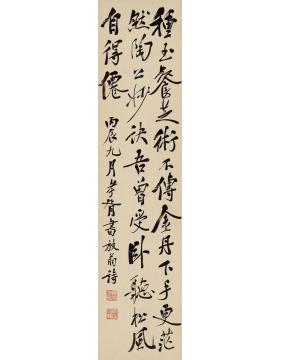 種玉餐芝術不傳金丹下手更茫
然陶公妙訣吾曾受卧聽松風
自得僊
丙辰九月孝胥書放翁詩